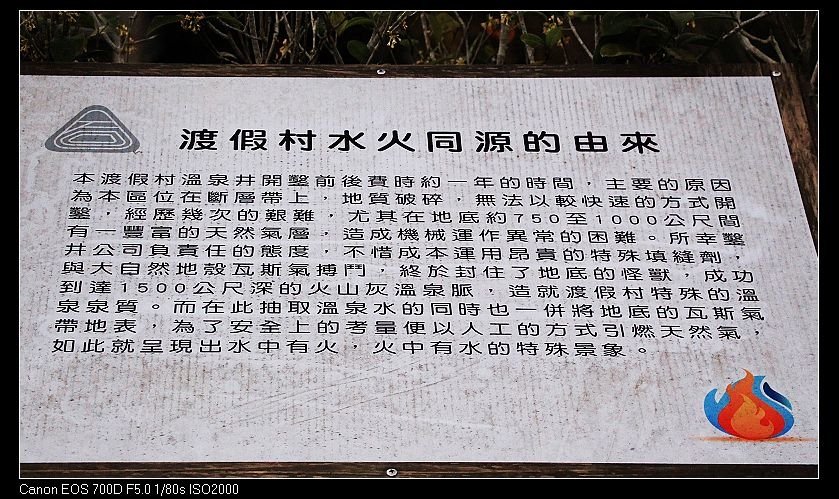 渡假村水火同源的由來
本渡假村溫泉井開鑿前後費時約一年的時間，主要的原因
為本區位在斷層帶上，地質破碎，無法以較快速的方式開
鑿，經歷幾次的艱難，尤其在地底約750至1000公尺間
有一豐富的天然氣層，造成機械運作異常的困難。所幸鑿
井公司負責任的態度，不惜成本運用昂貴的特殊填縫劑，
與大自然地殼瓦斯氣搏鬥，終於封住了地底的怪獸，成功
到達1500公尺深的火山灰溫泉脈，造就渡假村特殊的溫
泉泉質。而在此抽取溫泉水的同時也一併將地底的瓦斯氣
帶地表，為了安全上的考量便以人工的方式引燃天然氣，
如此就呈現出水中有火，火中有水的特殊景象。
Canon EOS 700D F5.0 1/80s ISO2000